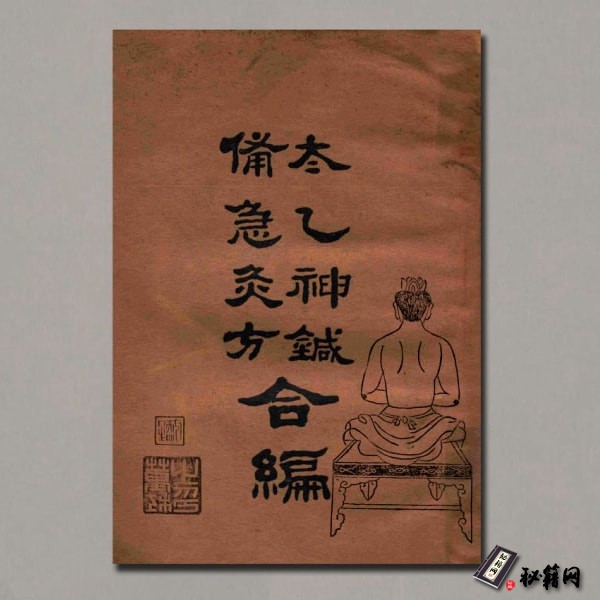 太乙神鍼
備急灸方
合編
秘籍网
秘籍网